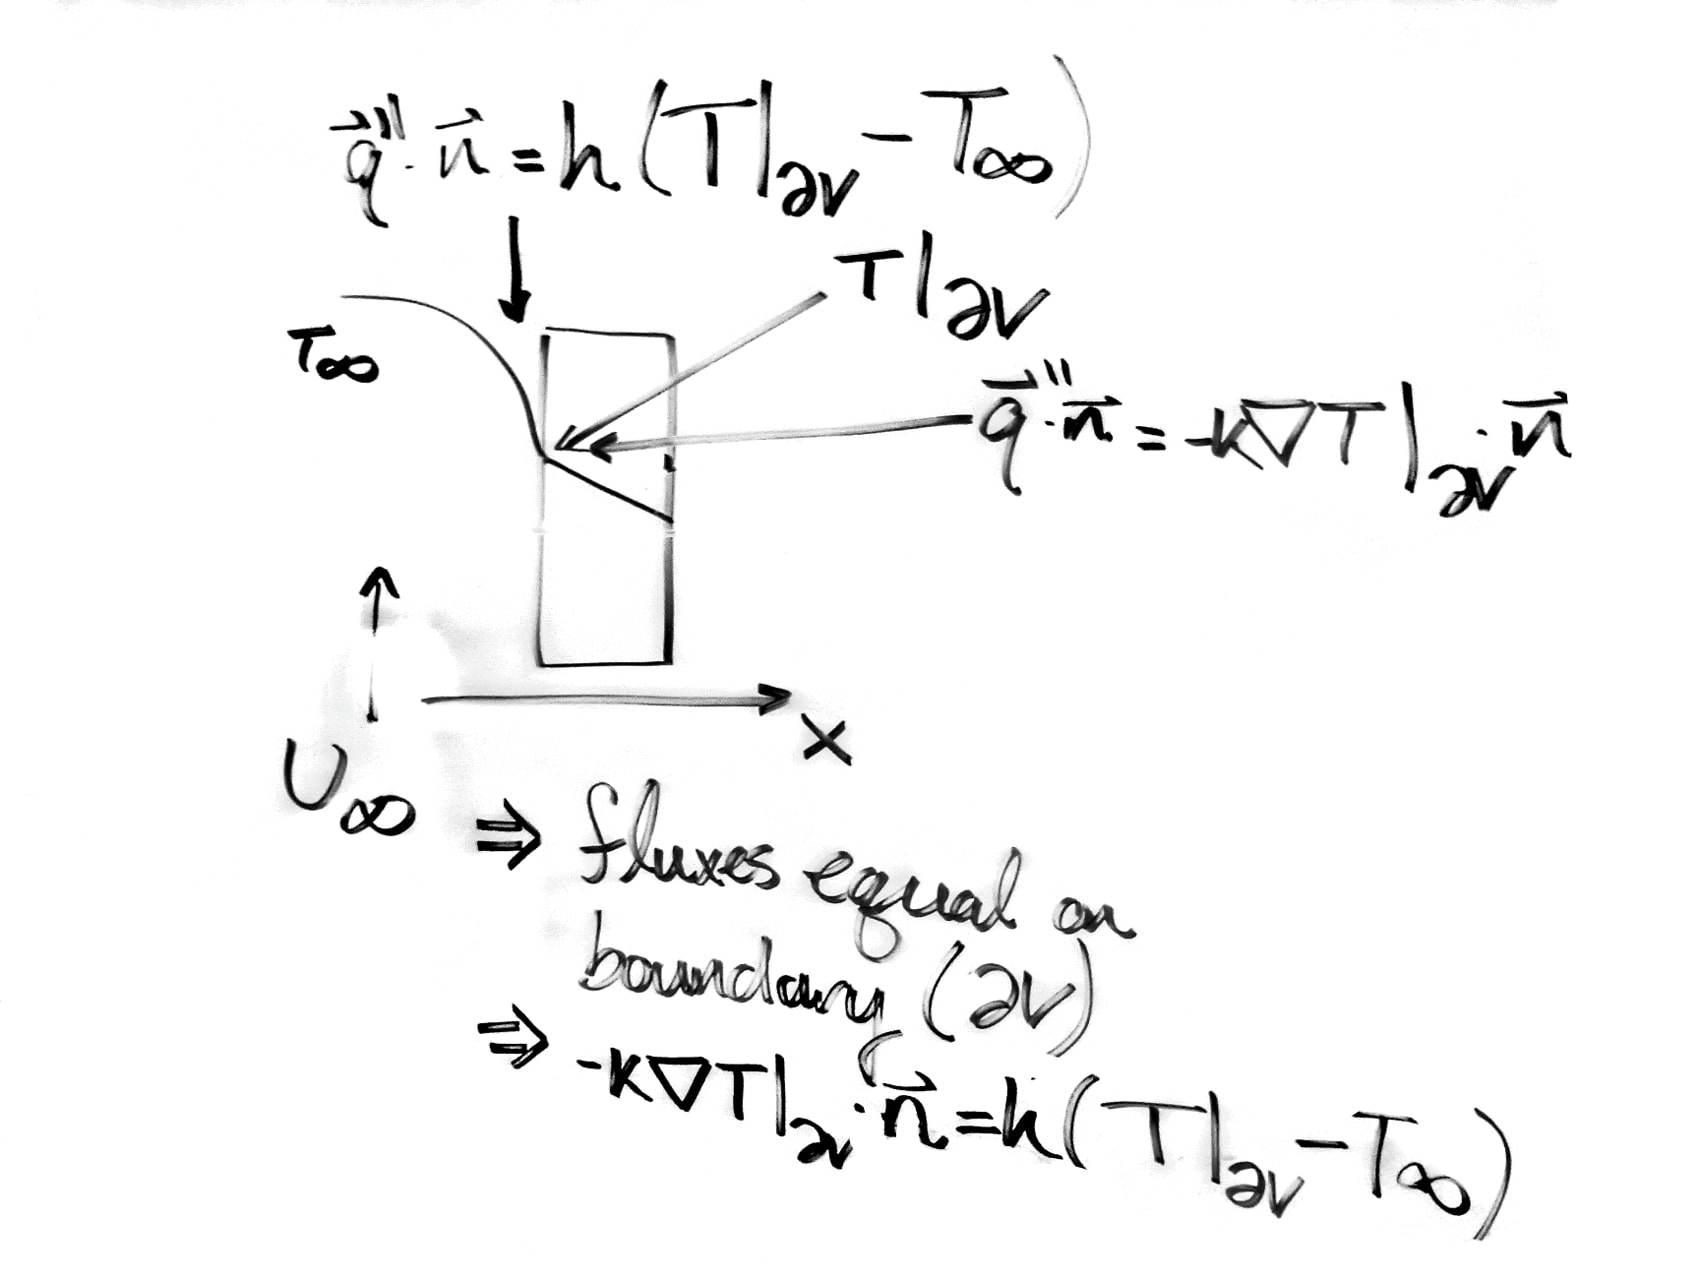 q⃗″·n⃗ = h(T|∂V - T∞)
T|∂V
T∞
q⃗″·n⃗ = -k∇T|∂V·n⃗
U∞
x
⇒ fluxes equal on
boundary (∂V)
⇒ -k∇T|∂V·n⃗ = h(T|∂V - T∞)